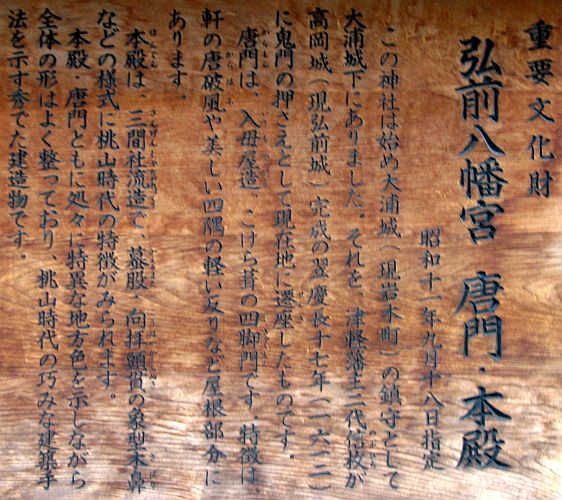 重要文化財
弘前八幡宮 唐門・本殿
昭和十一年九月十八日指定
この神社は始め大浦城(現岩木町)の鎮守として
大浦城下にありました。それを、津軽藩主二代信枚が
高岡城(現弘前城)完成の翌慶長十七年(一六一二)
に鬼門の押さえとして現在地に遷座したものです。
唐門は、入母屋造、こけら葺の四脚門です。特徴は、
軒の唐破風や美しい四隅の軽い反りなど屋根部分に
あります。
本殿は、三間社流造で、蟇股・向拝頭貫の象型木鼻
などの様式に桃山時代の特徴がみられます。
本殿・唐門ともに処々に特異な地方色を示しながら
全体の形はよく整っており、桃山時代の巧みな建築手
法を示す秀でた建造物です。